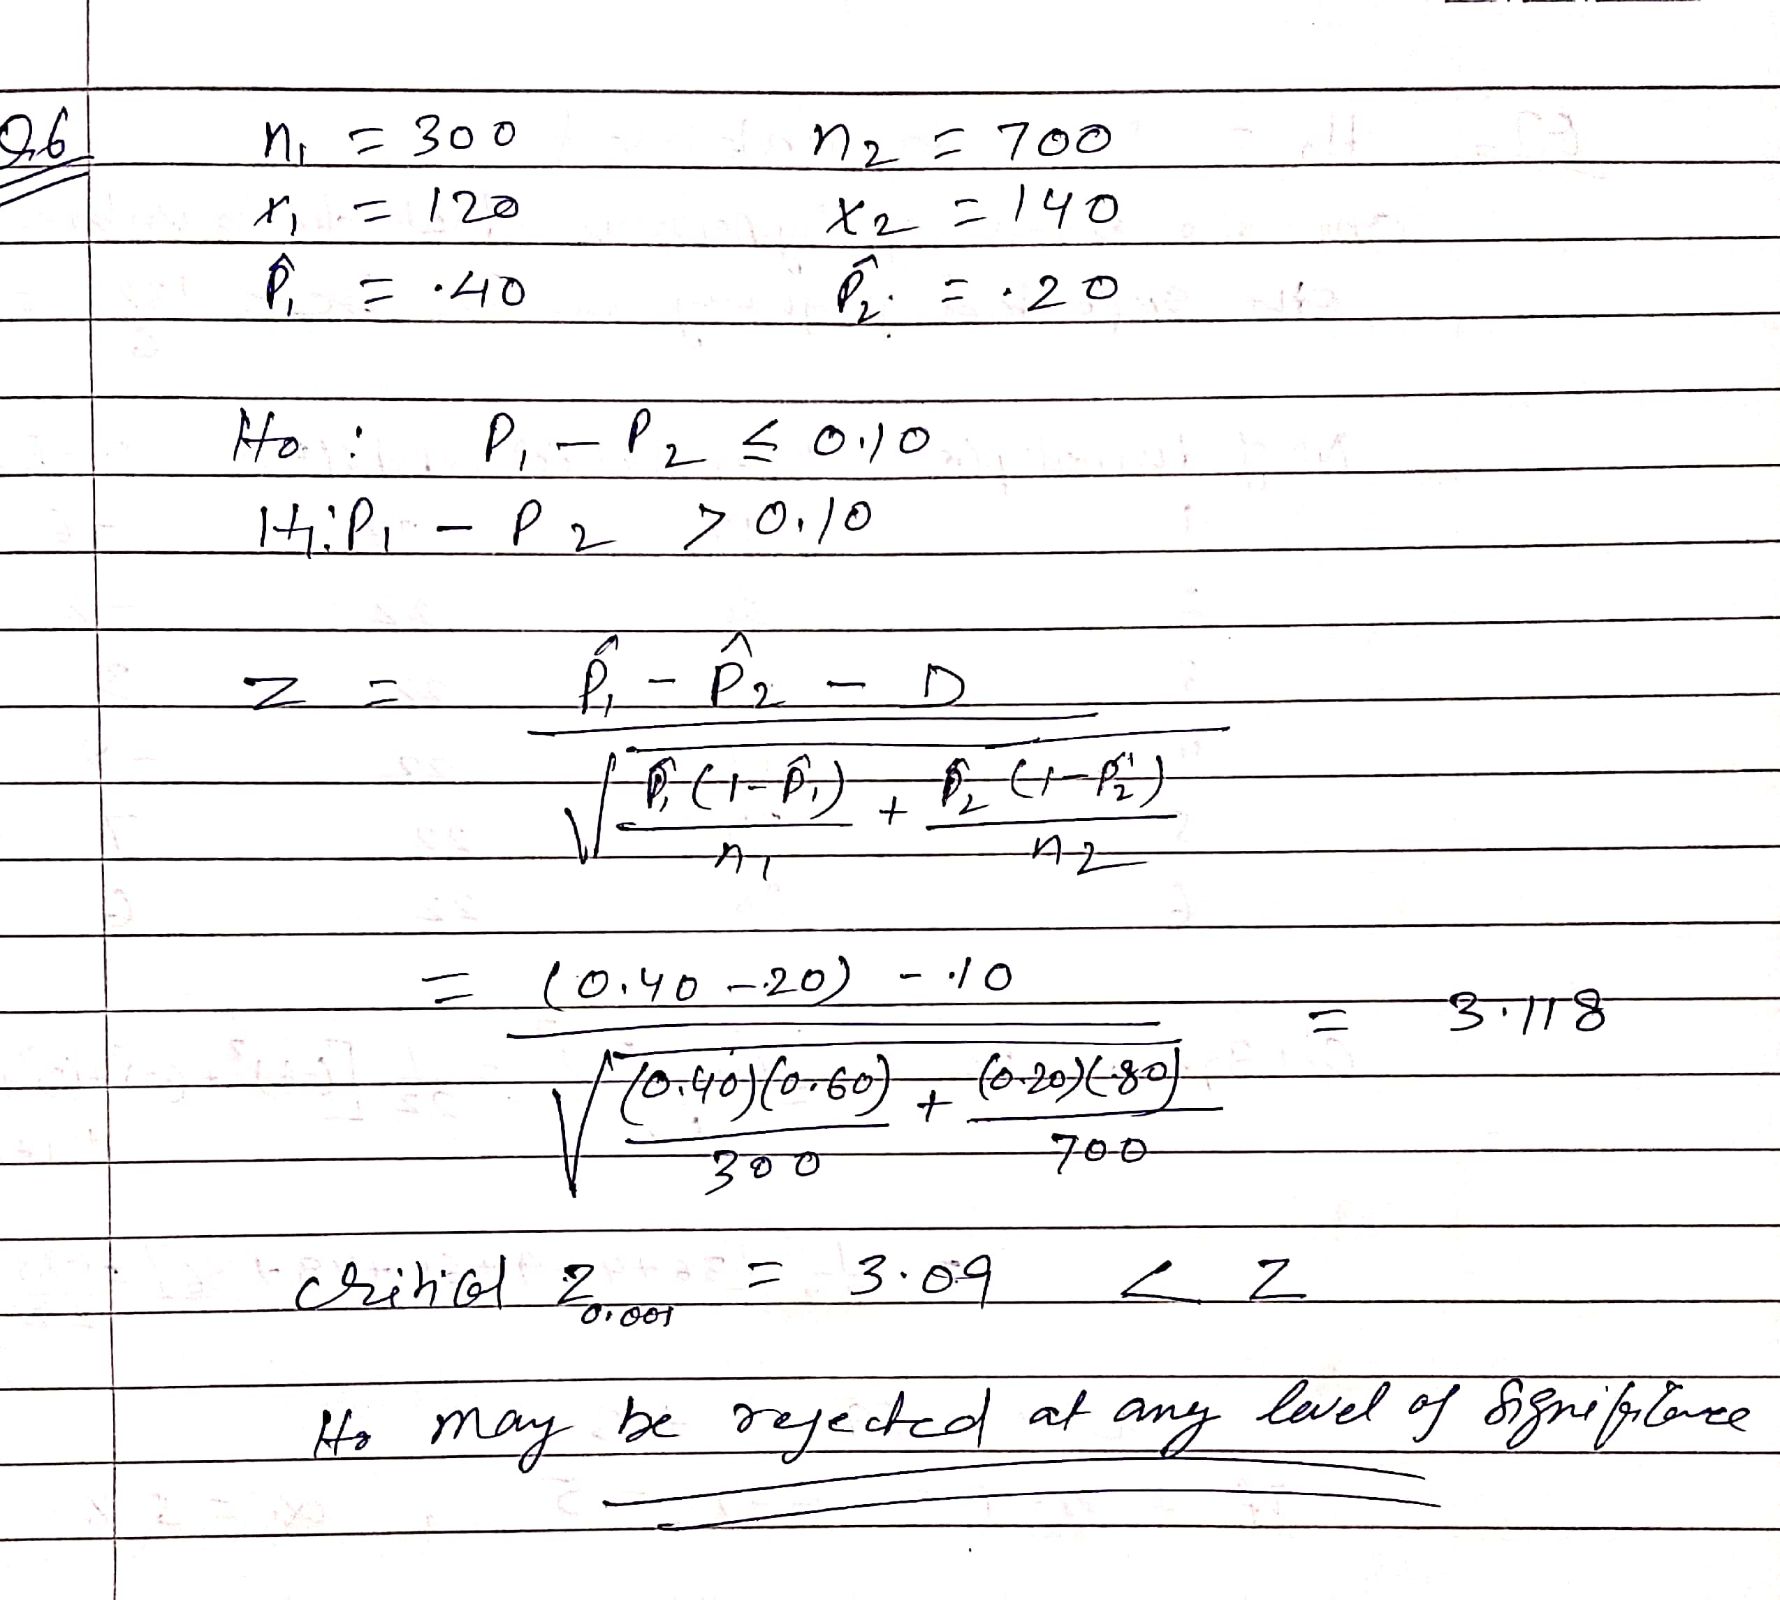 Q6 n₁ = 300 n₂ = 700
x₁ = 120 x₂ = 140
p̂₁ = .40 p̂₂ = .20
Ho : P₁ - P₂ ≤ 0.10
H₁: P₁ - P₂ > 0.10
Z = p̂₁ - p̂₂ - D
√ p̂₁(1-p̂₁) + p̂₂(1-p̂₂)
n₁ n₂
= (0.40 -.20) - .10 = 3.118
√ (0.40)(0.60) + (0.20)(.80)
300 700
critical Z0.001 = 3.09 < Z
Ho may be rejected at any level of significance